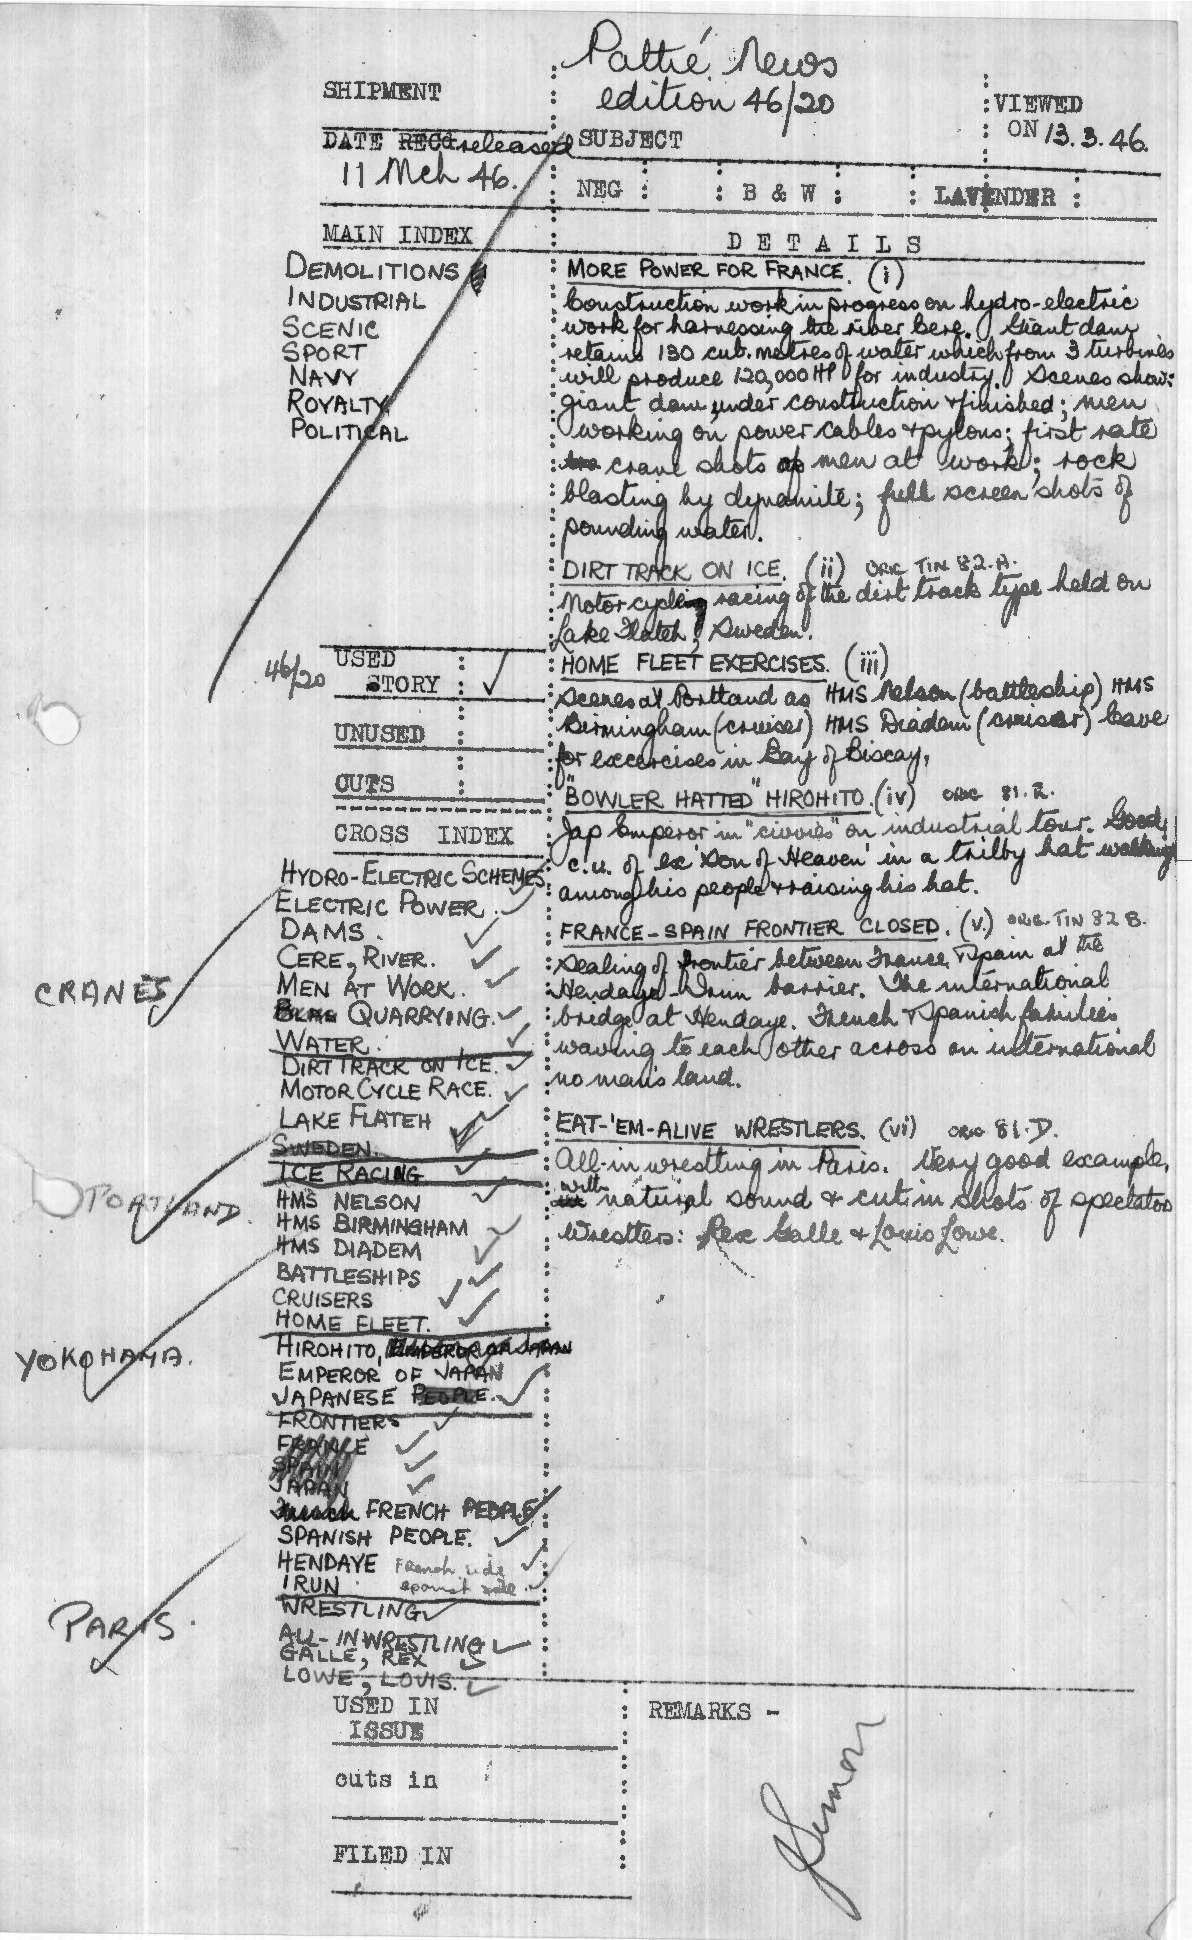 Pathé News
edition 46/20
SHIPMENT
VIEWED
ON 13.3.46.
DATE RECd released
SUBJECT
11 Mch 46.
NEG : : B & W : : LAVENDER :
MAIN INDEX
DETAILS
DEMOLITIONS
INDUSTRIAL
SCENIC
SPORT
NAVY
ROYALTY
POLITICAL
MORE POWER FOR FRANCE. (i)
Construction work in progress on hydro-electric
work for harnessing the river Cere. Giant dam
retains 130 cub. metres of water which from 3 turbines
will produce 120,000 HP for industry. Scenes show:
giant dam under construction & finished; men
working on power cables & pylons; first rate
crane shots of men at work; rock
blasting by dynamite; full screen shots of
pounding water.
DIRT TRACK ON ICE. (ii) ORIG TIN 82.A.
Motor cycling racing of the dirt track type held on
Lake Flateh, Sweden.
46/20
USED
STORY
UNUSED
CUTS
HOME FLEET EXERCISES. (iii)
Scenes at Portland as HMS Nelson (battleship) HMS
Birmingham (cruiser) HMS Diadem (cruiser) leave
for excercises in Bay of Biscay.
"BOWLER HATTED" HIROHITO. (iv) ORIG 81.R.
Jap Emperor in "civvies" on industrial tour. Good
c.u. of 'ex Son of Heaven' in a trilby hat walking
among his people & raising his hat.
FRANCE-SPAIN FRONTIER CLOSED. (v.) ORIG TIN 82 B.
Sealing of frontier between France & Spain at the
Hendaye-Irun barrier. The international
bridge at Hendaye. French & Spanish families
waving to each other across an international
no man's land.
EAT-'EM-ALIVE WRESTLERS. (vi) ORIG 81.D.
All-in wrestling in Paris. Very good example,
with natural sound & cut in shots of spectators
Wrestlers: Rex Galle & Louis Lowe.
CROSS INDEX
HYDRO-ELECTRIC SCHEMES
ELECTRIC POWER.
DAMS.
CERE, RIVER.
MEN AT WORK.
CRANES
QUARRYING.
WATER.
DIRT TRACK ON ICE.
MOTOR CYCLE RACE.
LAKE FLATEH
SWEDEN.
ICE RACING
PORTLAND.
HMS NELSON
HMS BIRMINGHAM
HMS DIADEM
BATTLESHIPS
CRUISERS
HOME FLEET.
YOKOHAMA.
HIROHITO, EMPEROR OF JAPAN
EMPEROR OF JAPAN
JAPANESE PEOPLE.
FRONTIERS
FRANCE
SPAIN
JAPAN
French FRENCH PEOPLE
SPANISH PEOPLE.
HENDAYE French side
IRUN Spanish side
PARIS.
WRESTLING
ALL-IN WRESTLING
GALLE, REX
LOWE, LOUIS.
USED IN
ISSUE
REMARKS -
cuts in
FILED IN